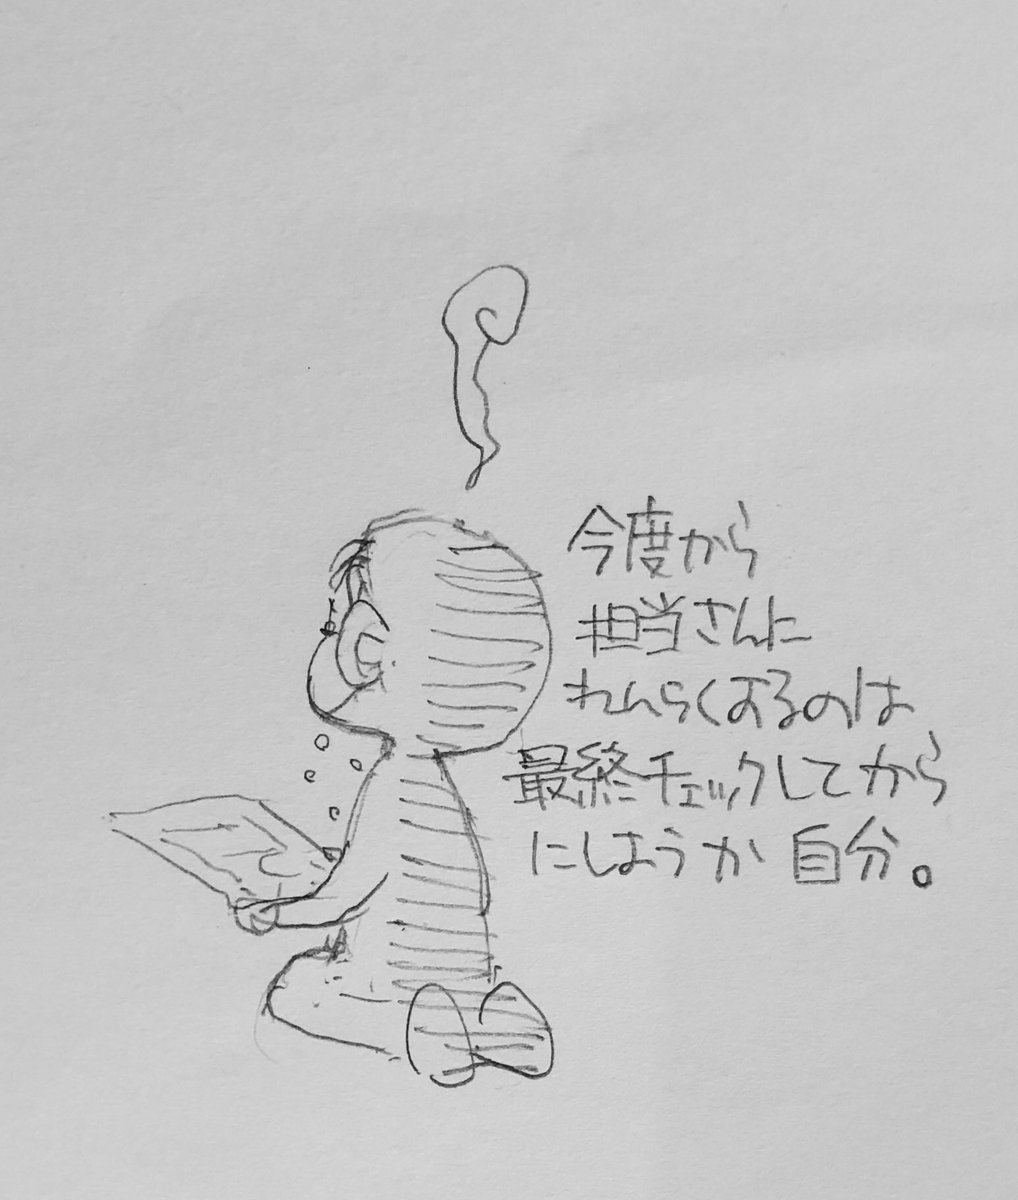 今度から
担当さんに
れんらくするのは
最終チェックしてから
にしようか自分。